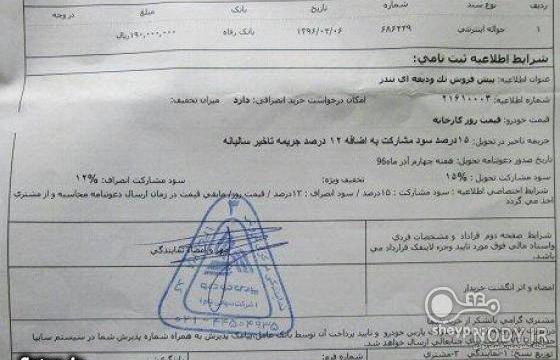 ردیف نوع سند شماره تاریخ بانک مبلغ در وجه
۱ حواله اینترنتی ۶۸۶۲۳۹ ۱۳۹۶/۰۲/۰۶ بانک رفاه ۱۹۰,۰۰۰,۰۰۰ریال
شرایط اطلاعیه ثبت نامی:
عنوان اطلاعیه: پیش فروش تك ودیعه ای بندر
شماره اطلاعیه: ۲۱۶۱۰۰۰۳ امکان درخواست خرید انصرافی: دارد میزان تخفیف:
قیمت خودرو: قیمت روز کارخانه
جریمه تاخیر در تحویل: ۱۵درصد سود مشارکت به اضافه ۱۲ درصد جریمه تاخیر سالیانه
تاریخ صدور دعوتنامه تحویل: هفته چهارم آذر ماه96
سود مشارکت تحویل: ۱۵% تخفیف ویژه: سود مشارکت انصراف: ۱۲%
شرایط اختصاصی اطلاعیه : سود مشارکت : ۱۵درصد / سود انصراف : ۱۲درصد / قیمت روز/ مابقی قیمت در زمان ارسال دعوتنامه محاسبه و از مشتری
اخذ می گردد
شرایط صفحه دوم قراداد و مشخصات فردی
واسناد مالی فوق مورد تایید وجزء لاینفک قرارداد می
باشد.
مهر و امضاء نمایندگی
امضاء و اثر انگشت خریدار
۰۲۱-۴۴۵۰۴۹۳۵
sheypoor
NODY.IR